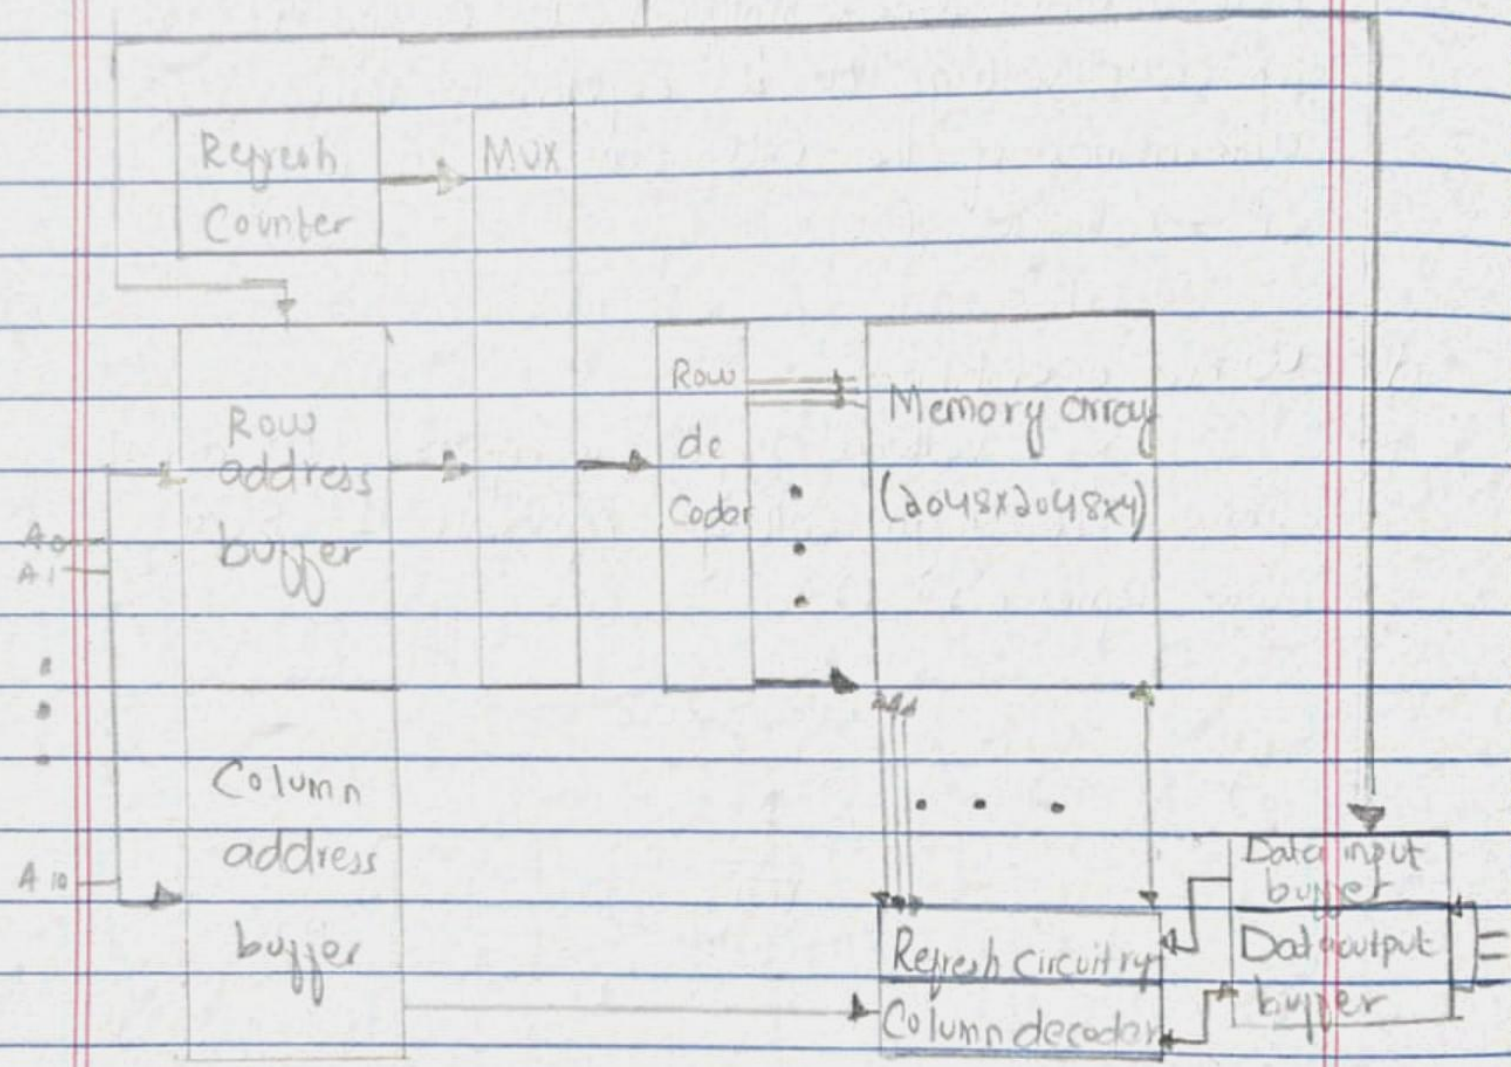 Refresh
Counter
MUX
Row
address
buffer
Row
de
Coder
Memory array
(2048x2048x4)
A0
A1
A10
Column
address
buffer
Data input
buffer
Data output
buffer
Refresh circuitry
Column decoder